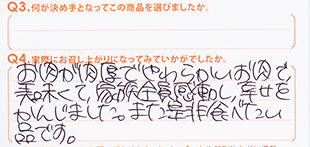 Q3.何が決め手となってこの商品を選びましたか。
Q4.実際にお召し上がりになってみていかがでしたか。
お肉が肉厚でやわらかいお肉で、
美味くて、家族全員感動し、幸せを
かんじました。また是非食べたい
品です。